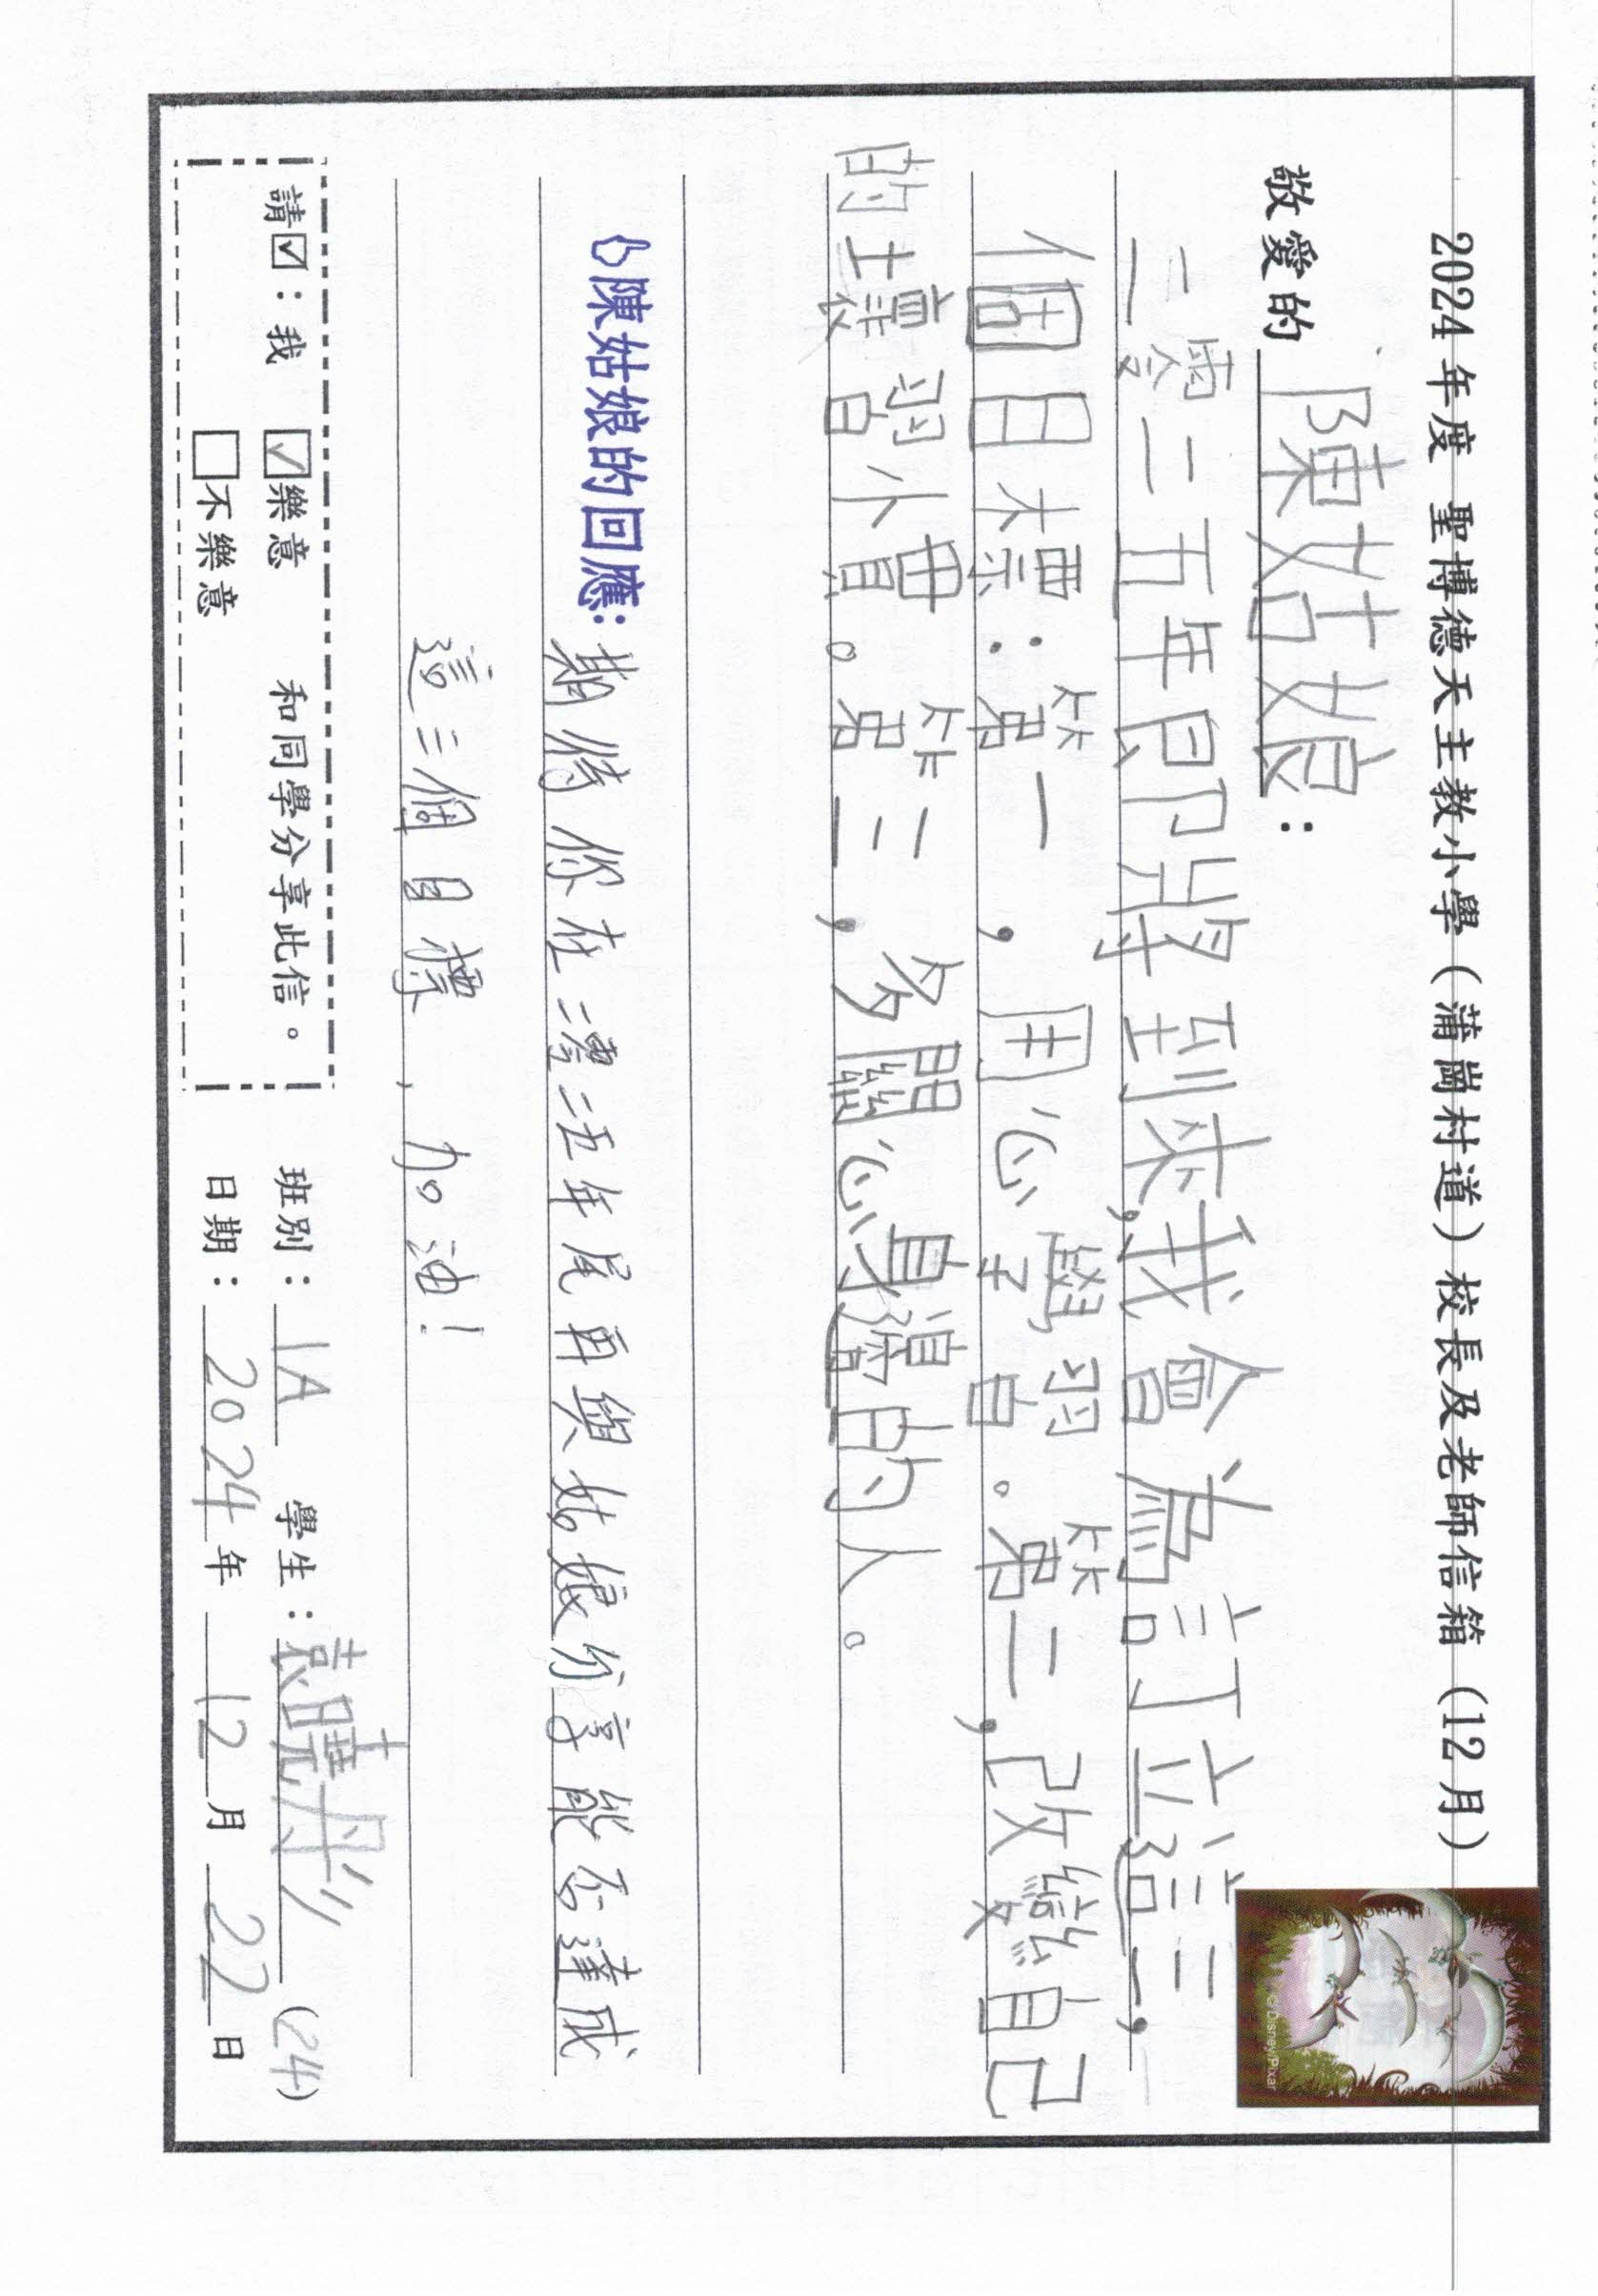 2024年度 聖博德天主教小學(蒲崗村道)校長及老師信箱(12月)
敬愛的 陳姑娘：
二零二五年即將到來，我會為訂立這三，
個目標：第一，用心學習。第二，改變自己
的土壞習小慣。第三，多關心身邊的人。
陳姑娘的回應：期待你在二零二五年尾再與姑娘分享能否達成
這三個目標，加油！
請☑：我 ☑樂意 和同學分享此信。
□不樂意
班別：1A 學生：袁曉彤 (24)
日期：2024年12月22日
©Disney/Pixar